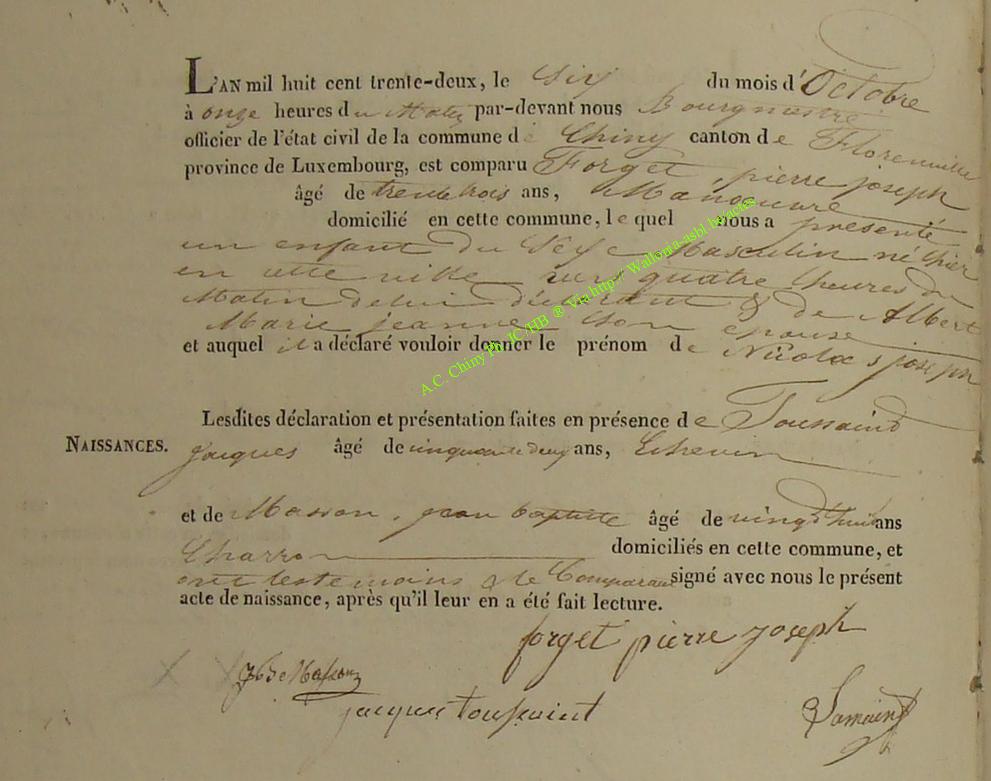 L'AN mil huit cent trente-deux, le Six du mois d'Octobre
à onze heures du Matin par-devant nous Bourgmestre
officier de l'état civil de la commune de Chiny canton de Florenville
province de Luxembourg, est comparu Forget, pierre joseph
âgé de trente trois ans, Manouvre
domicilié en cette commune, lequel nous a présenté
un enfant du Sexe Masculin né hier
en cette ville vers quatre heures du
Matin de lui déclarant & de Albert
Marie jeanne son épouse
et auquel il a déclaré vouloir donner le prénom de Nicolas joseph
Lesdites déclaration et présentation faites en présence de Toussaint
NAISSANCES.
jacques âgé de cinquante deux ans, Echevin
et de Masson, jean baptiste âgé de vingt huit ans
Charron domiciliés en cette commune, et
ont les temoins & le Comparant signé avec nous le présent
acte de naissance, après qu'il leur en a été fait lecture.
forget pierre joseph
Masson
jacques toussaint
A.C. Chiny Ph. JC HB ® Via http:// Wallonia-asbl be/actes